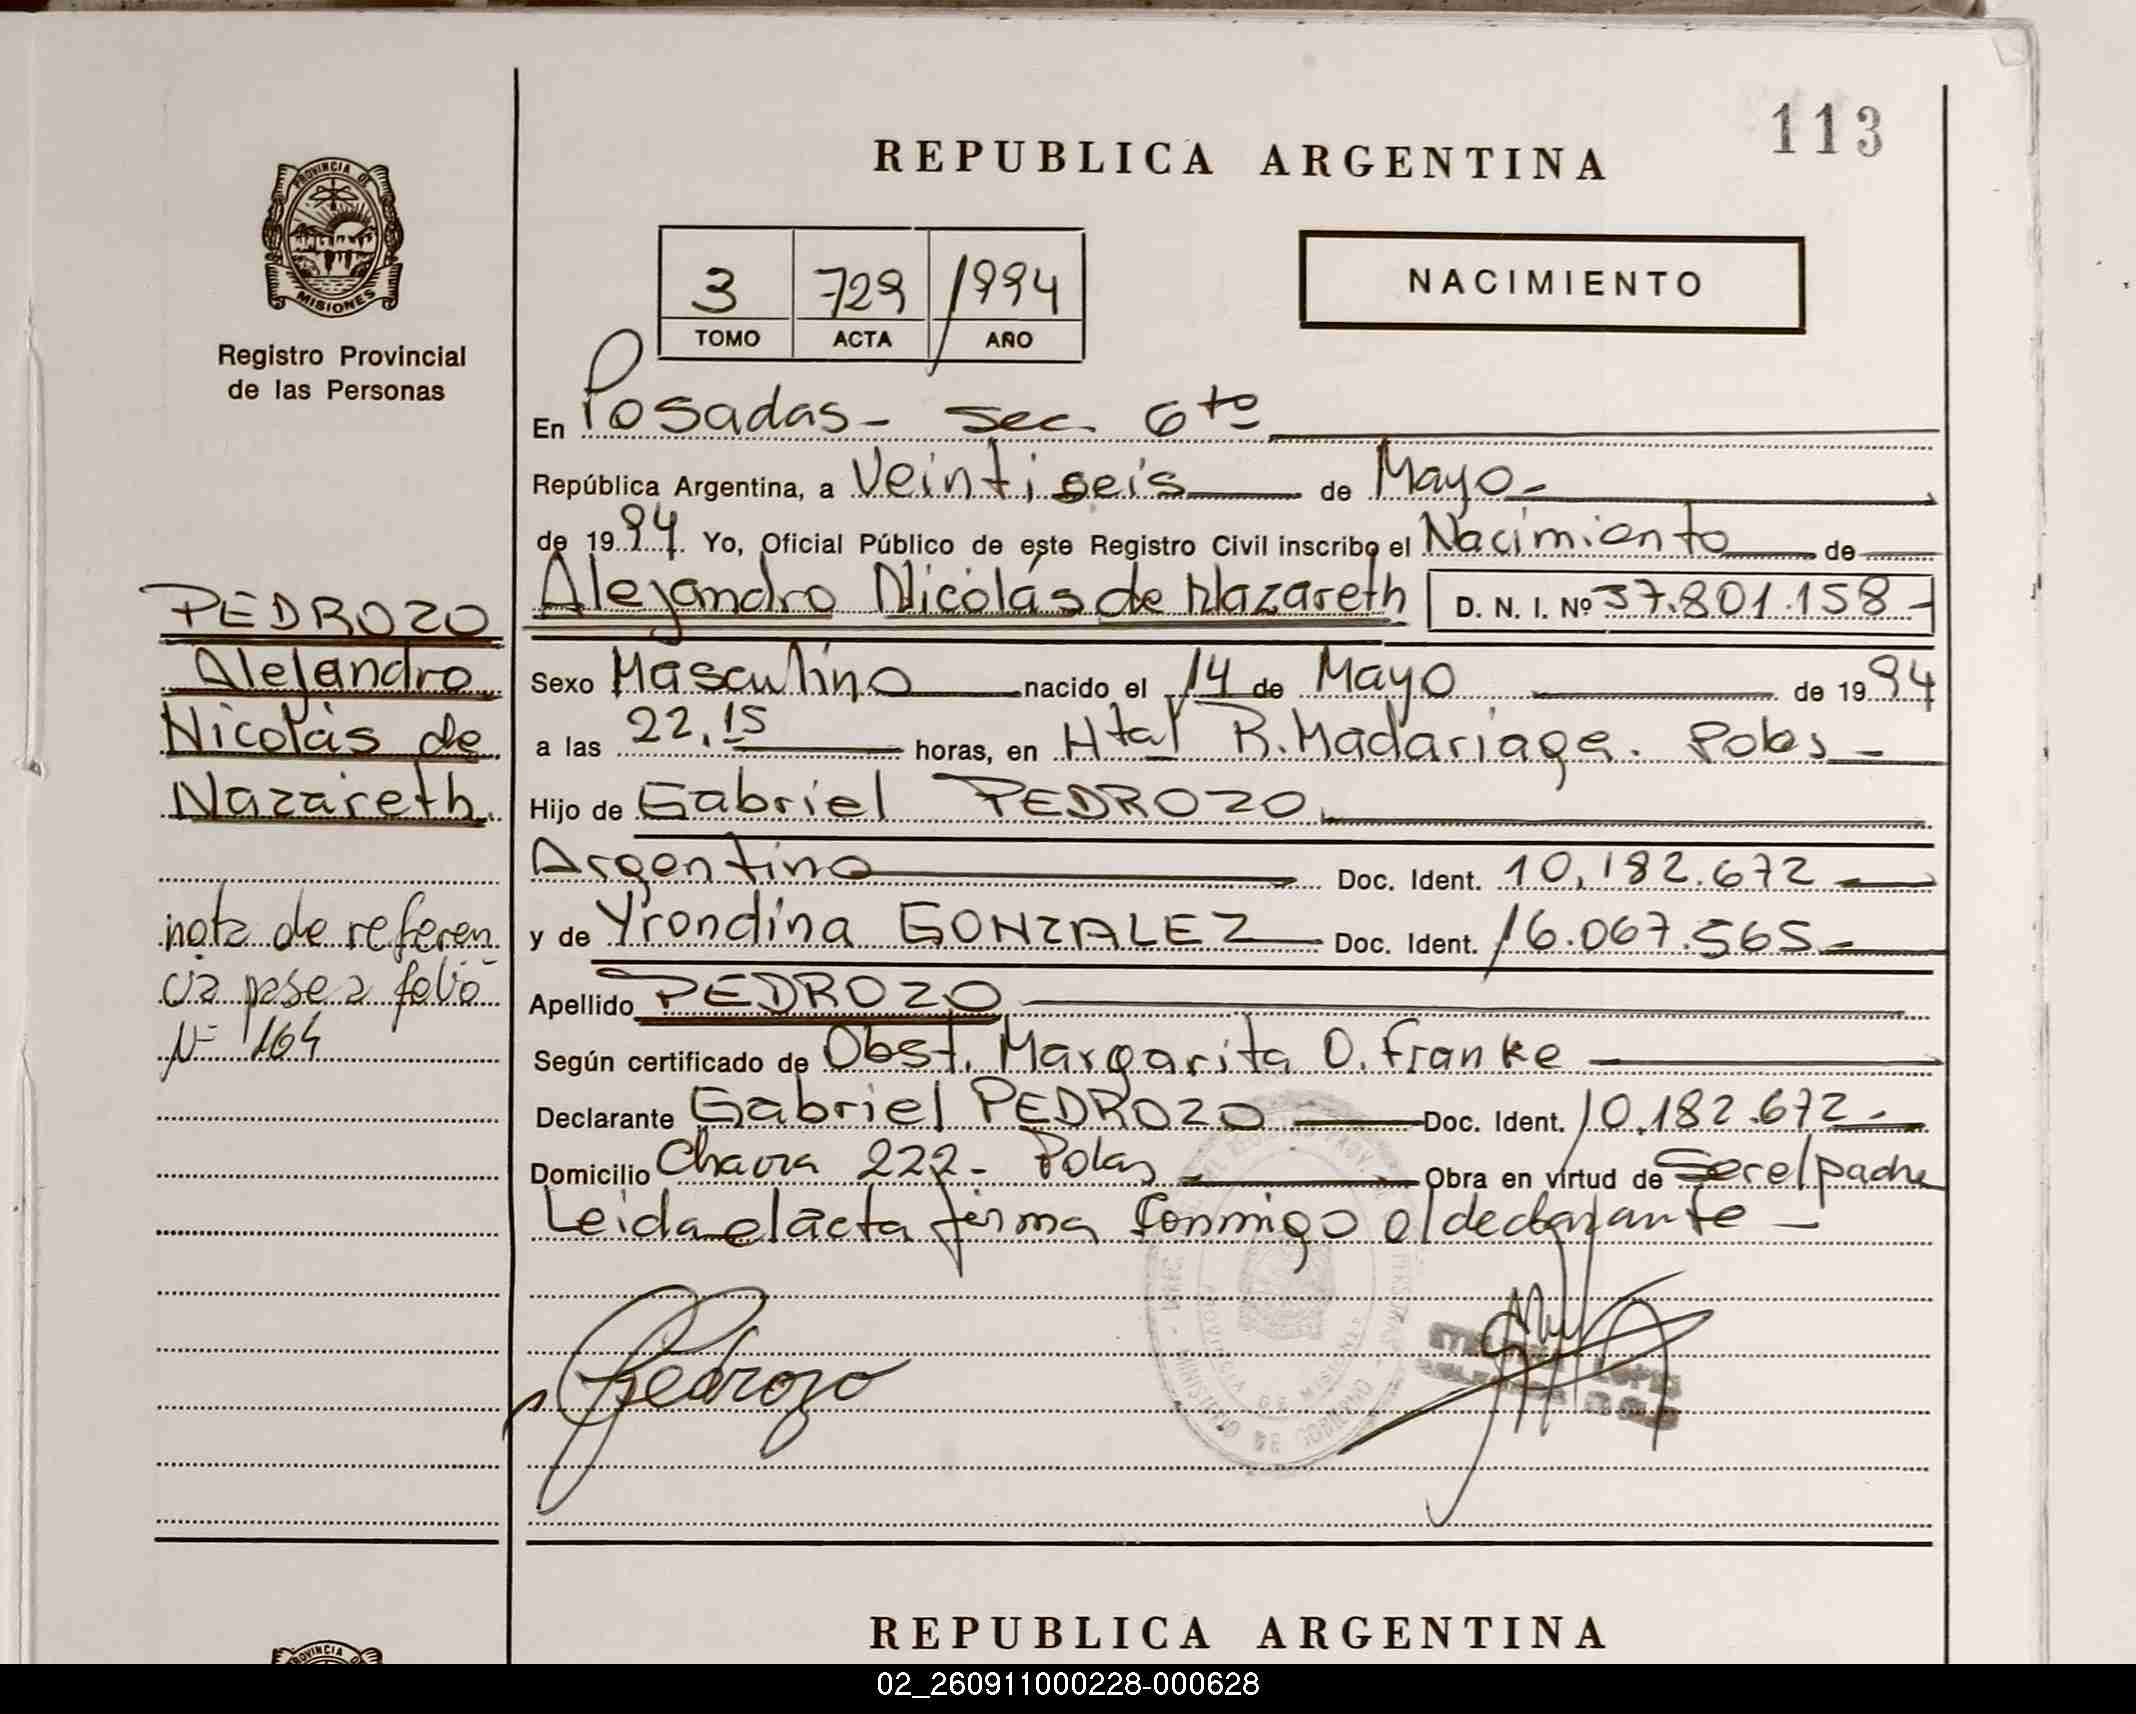 113
REPUBLICA ARGENTINA
PROVINCIA DE
MISIONES
Registro Provincial
de las Personas
3 729 1994
TOMO ACTA AÑO
NACIMIENTO
En Posadas - sec. 6to
República Argentina, a Veintiseis de Mayo -
de 1994. Yo, Oficial Público de este Registro Civil inscribo el Nacimiento de
Alejandro Nicolás de Nazareth D. N. I. Nº 37.801.158 -
Sexo Masculino nacido el 14 de Mayo de 1994
a las 22,15 horas, en Htal R. Madariaga. Pdas -
Hijo de Gabriel PEDROZO
Argentino Doc. Ident. 10,182.672
y de Yrondina GONZALEZ Doc. Ident. 16.067.565 -
Apellido PEDROZO
Según certificado de Obst. Margarita O. Franke
Declarante Gabriel PEDROZO Doc. Ident. 10,182.672 -
Domicilio 222 - Pdas Obra en virtud de Ser el padre
Leida el acta firma conmigo el declarante -
Pedrozo
PEDROZO
Alejandro
Nicolás de
Nazareth.
nota de referen
cia pase a folio
Nº 164
REPUBLICA ARGENTINA
02_260911000228-000628